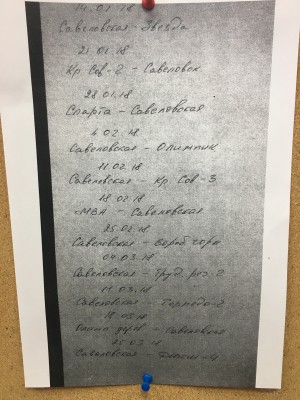 14.01.18
Савеловская - Звезда
21.01.18
Кр Сов-2 - Савеловск
28.01.18
Спарта - Савеловская
4.02.18
Савеловская - Олимпик
11.02.18
Савеловская - Кр. Сов-3
18.02.18
Савеловская
25.02.18
Савеловская - Вороб горы
04.03.18
Савеловская - Труд. рез-2
11.03.18
Савеловская - Торпедо-2
18.03.18
Савеловск
25.03.18
Савеловская